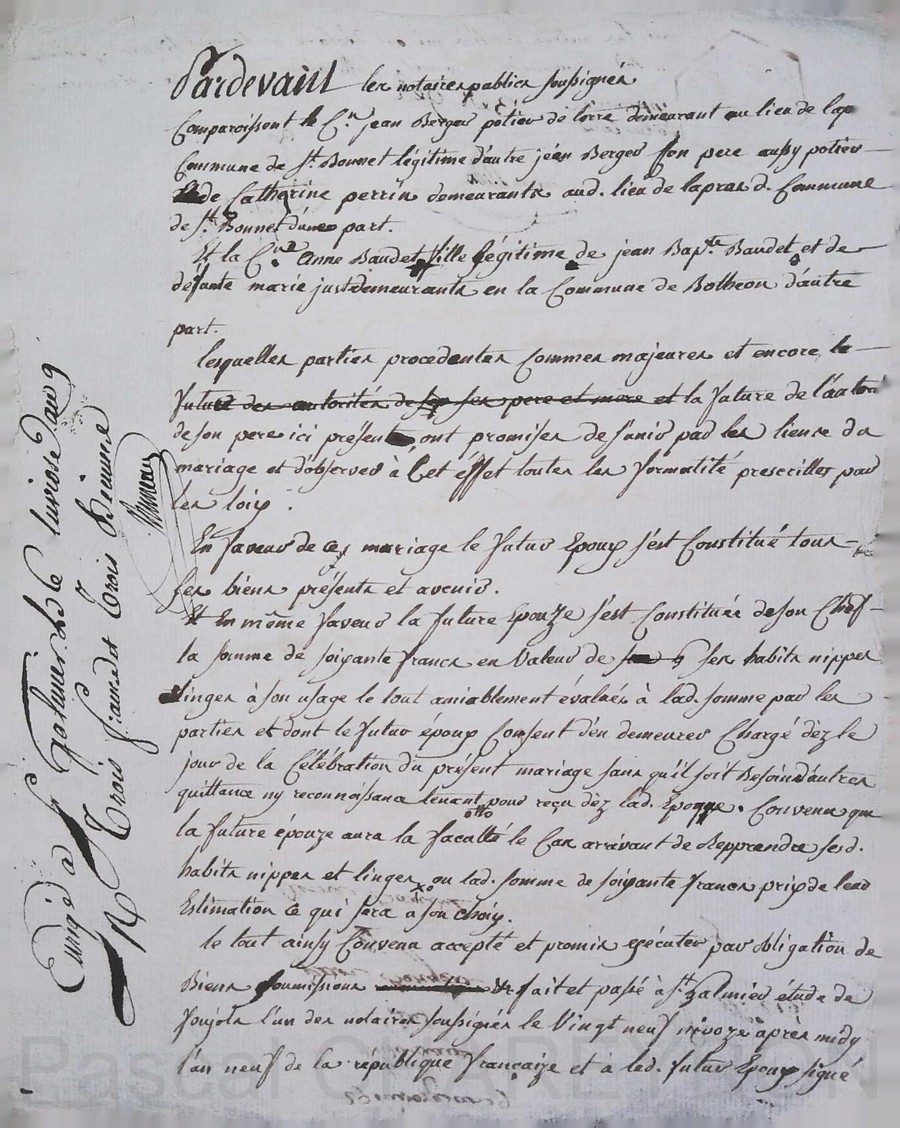 Pardevant les notaires publics soussignés
Comparoissent le C.en jean Berger potier de terre demeurant au lieu de lap
Commune de St. Bonnet légitime d'autre jean Berger son pere aussy potier
de Catherine perrin demeurants aud. lieu de lapras d. Commune
de St. Bonnet d'une part.
Et la C.ne Anne Baudet fille légitime de jean Bap.te Baudet et de
défunte marie just demeurants en la Commune de Botheon d'autre
part.
lesquelles parties procedentes Commes majeures et encore le
futur des autorités de ses pere et mere et la future de l'autori
de son pere ici présent ont promises de s'unir par les liense du
mariage et d'observer à Cet éffet toutes les formalité prescrittes par
les loix.
En faveur de ce mariage le futur Epoux s'est Constitué tous
ses biens présents et avenir.
Et En même faveur la future Epouze s'est Constituée de son Chef
la somme de soixante francs en valeur de ses habits nippes
linges à son usage le tout amiablement évalués à lad. somme par les
parties et dont le futur époux Consent d'en demeurer Chargé dèz le
jour de la Célébration du présent mariage sans qu'il soit Besoin d'autres
quittance ny reconnoissance tenant pour reçu dèz lad. Epoque. Convenu que
la future épouze aura la faculté le Cas arrivant de Repprendre sesd.
habits nippes et linges ou lad. somme de soixante francs prix de leur
Estimation ce qui sera à son choix.
le tout ainsy Convenu accepté et promis exécuter par obligation de
Biens soumissions fait et passé à St. galmier étude de
Foujols l'un des notaires soussignés le Vingt neuf nivoze après midy
l'an neuf de la république francaize et à led. futur Epoux signé
Enrg.é à St Galmier le luviose an 9
R Trois francs Trois
Pascal CHAREYRON